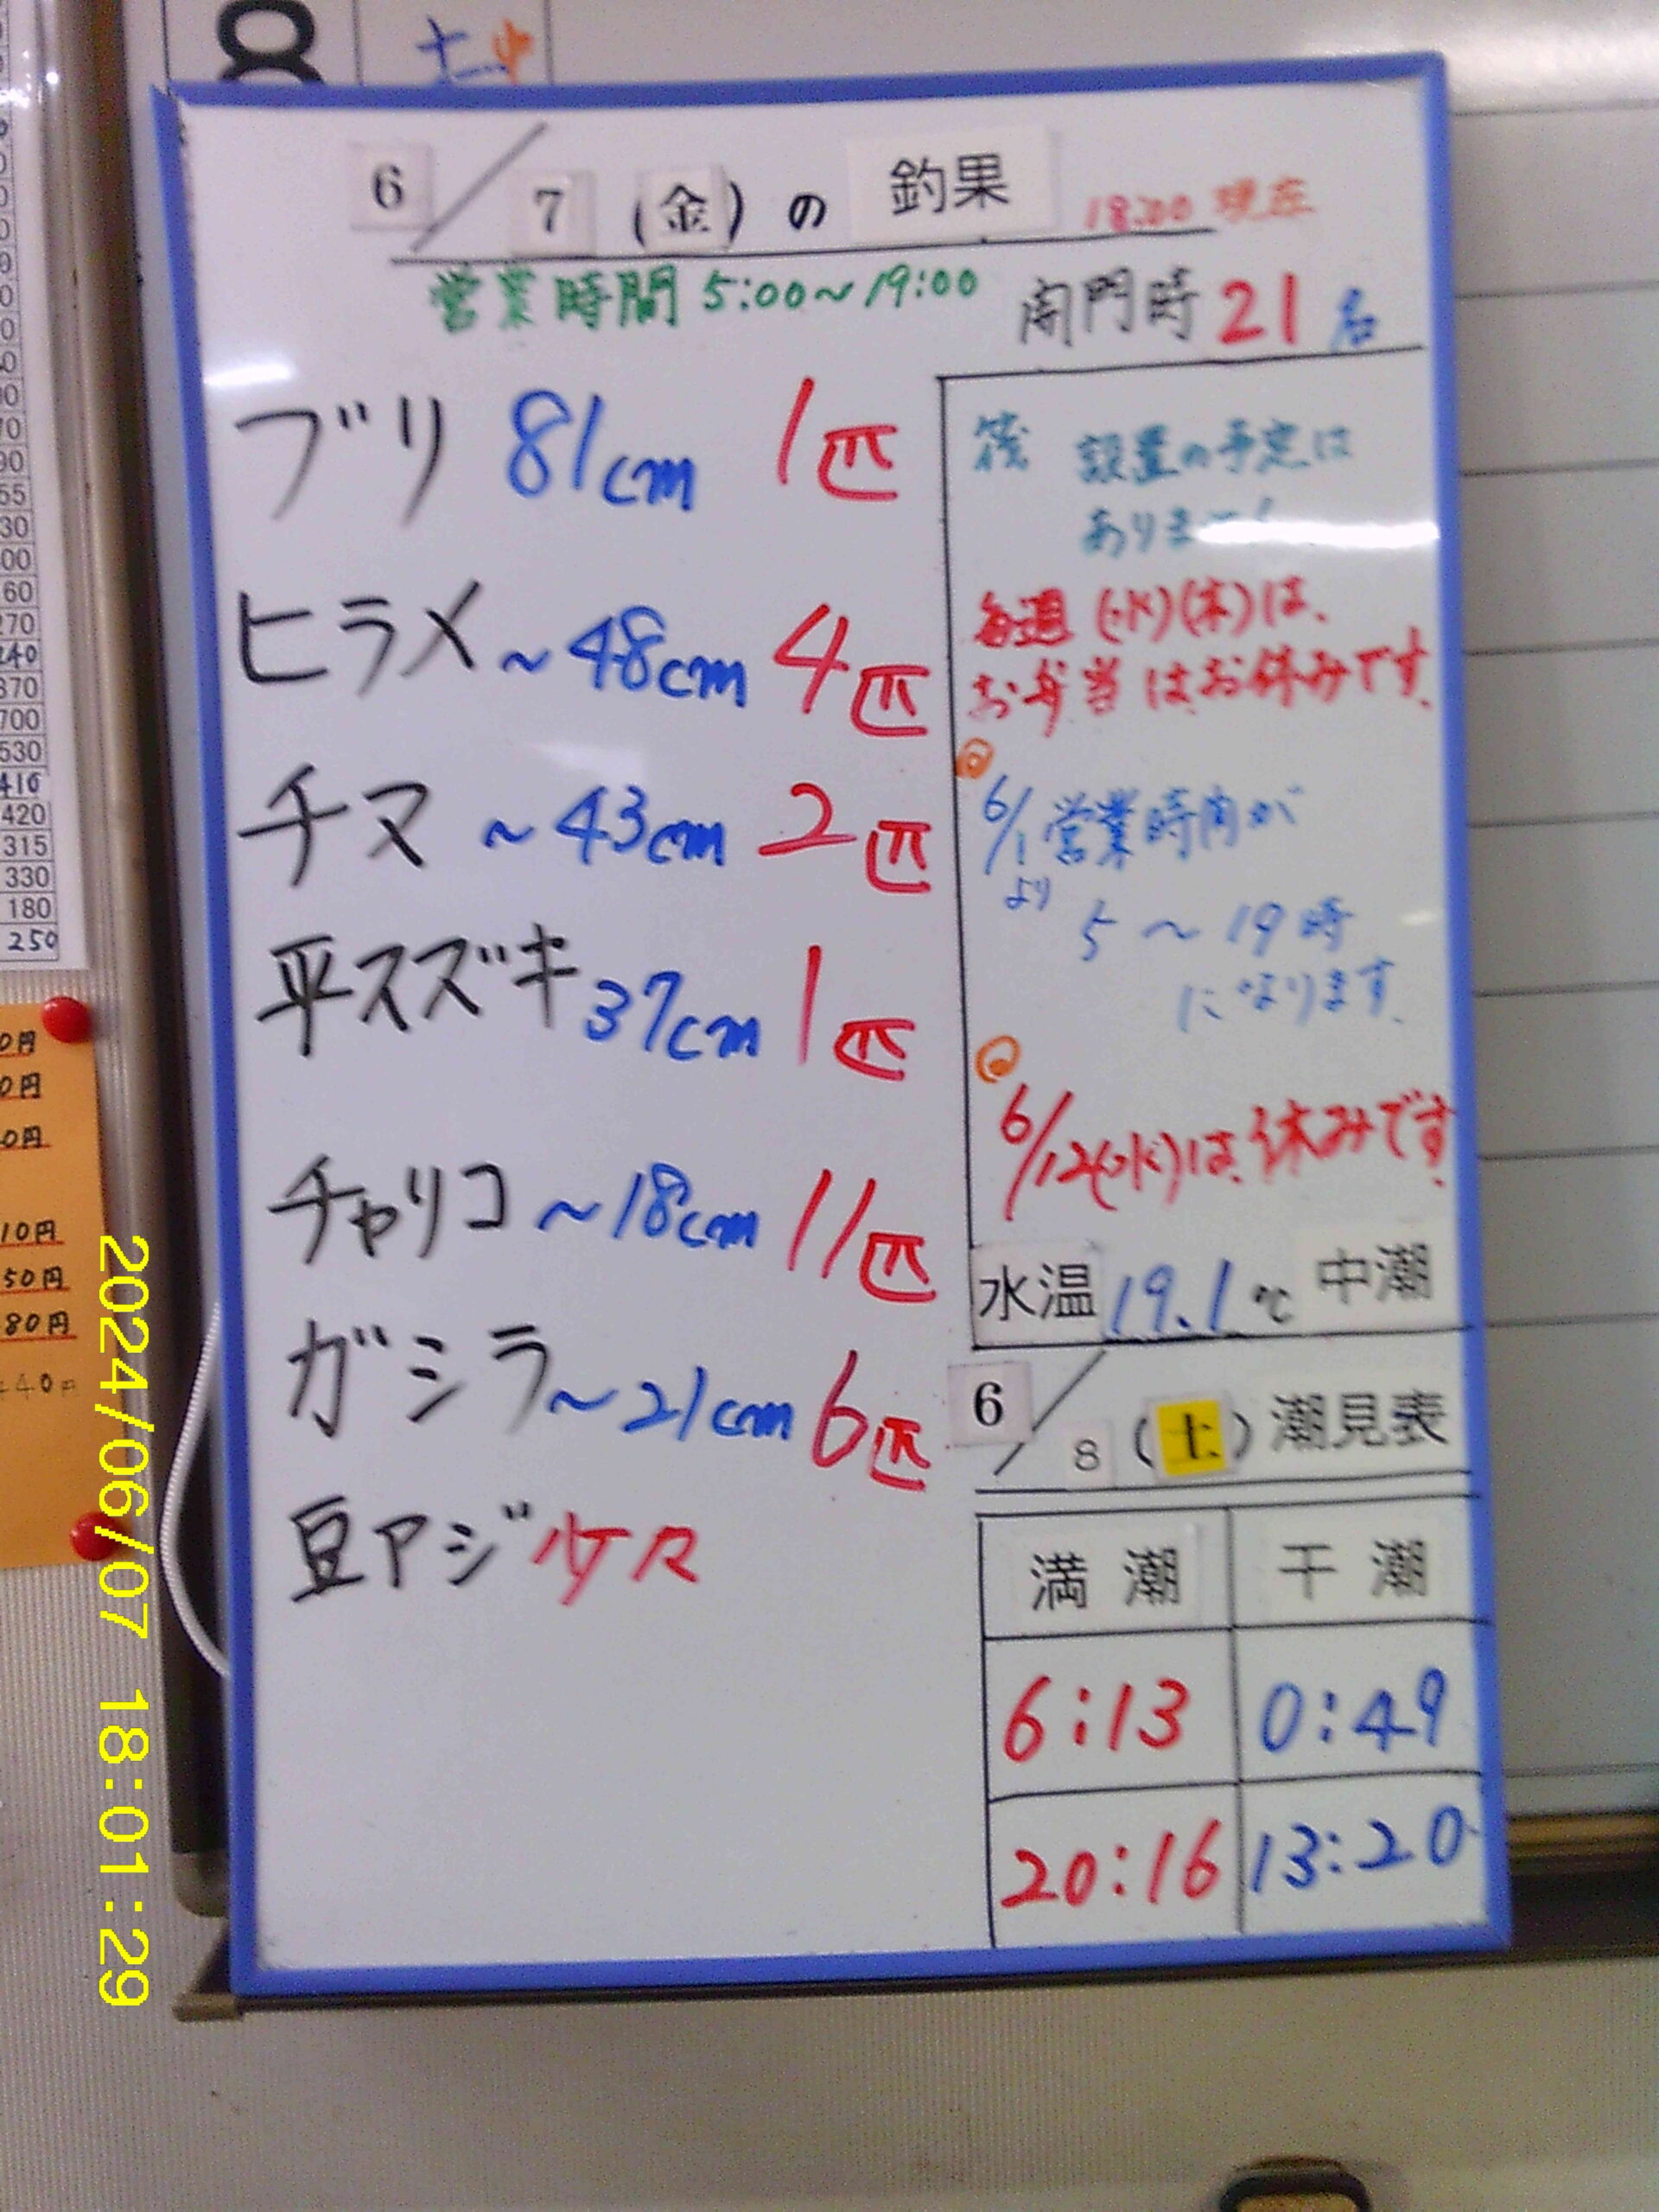 8
土 中
6/7(金)の 釣果 18:00 現在
営業時間 5:00～19:00
開門時 21名
ブリ 81cm 1匹
ヒラメ ～48cm 4匹
チヌ ～43cm 2匹
平スズキ 37cm 1匹
チャリコ ～18cm 11匹
ガシラ ～21cm 6匹
豆アジ 少々
筏 設置の予定は
ありません
毎週(水)(木)は、
お弁当はお休みです。
6/1より 営業時間が
5～19時
になります。
6/12(水)は、休みです。
水温 19.1℃ 中潮
6/8(土)潮見表
満潮 干潮
6:13 0:49
20:16 13:20
270
240
370
700
530
416
420
315
330
180
250
0円
0円
0円
10円
50円
80円
2024/06/07 18:01:29